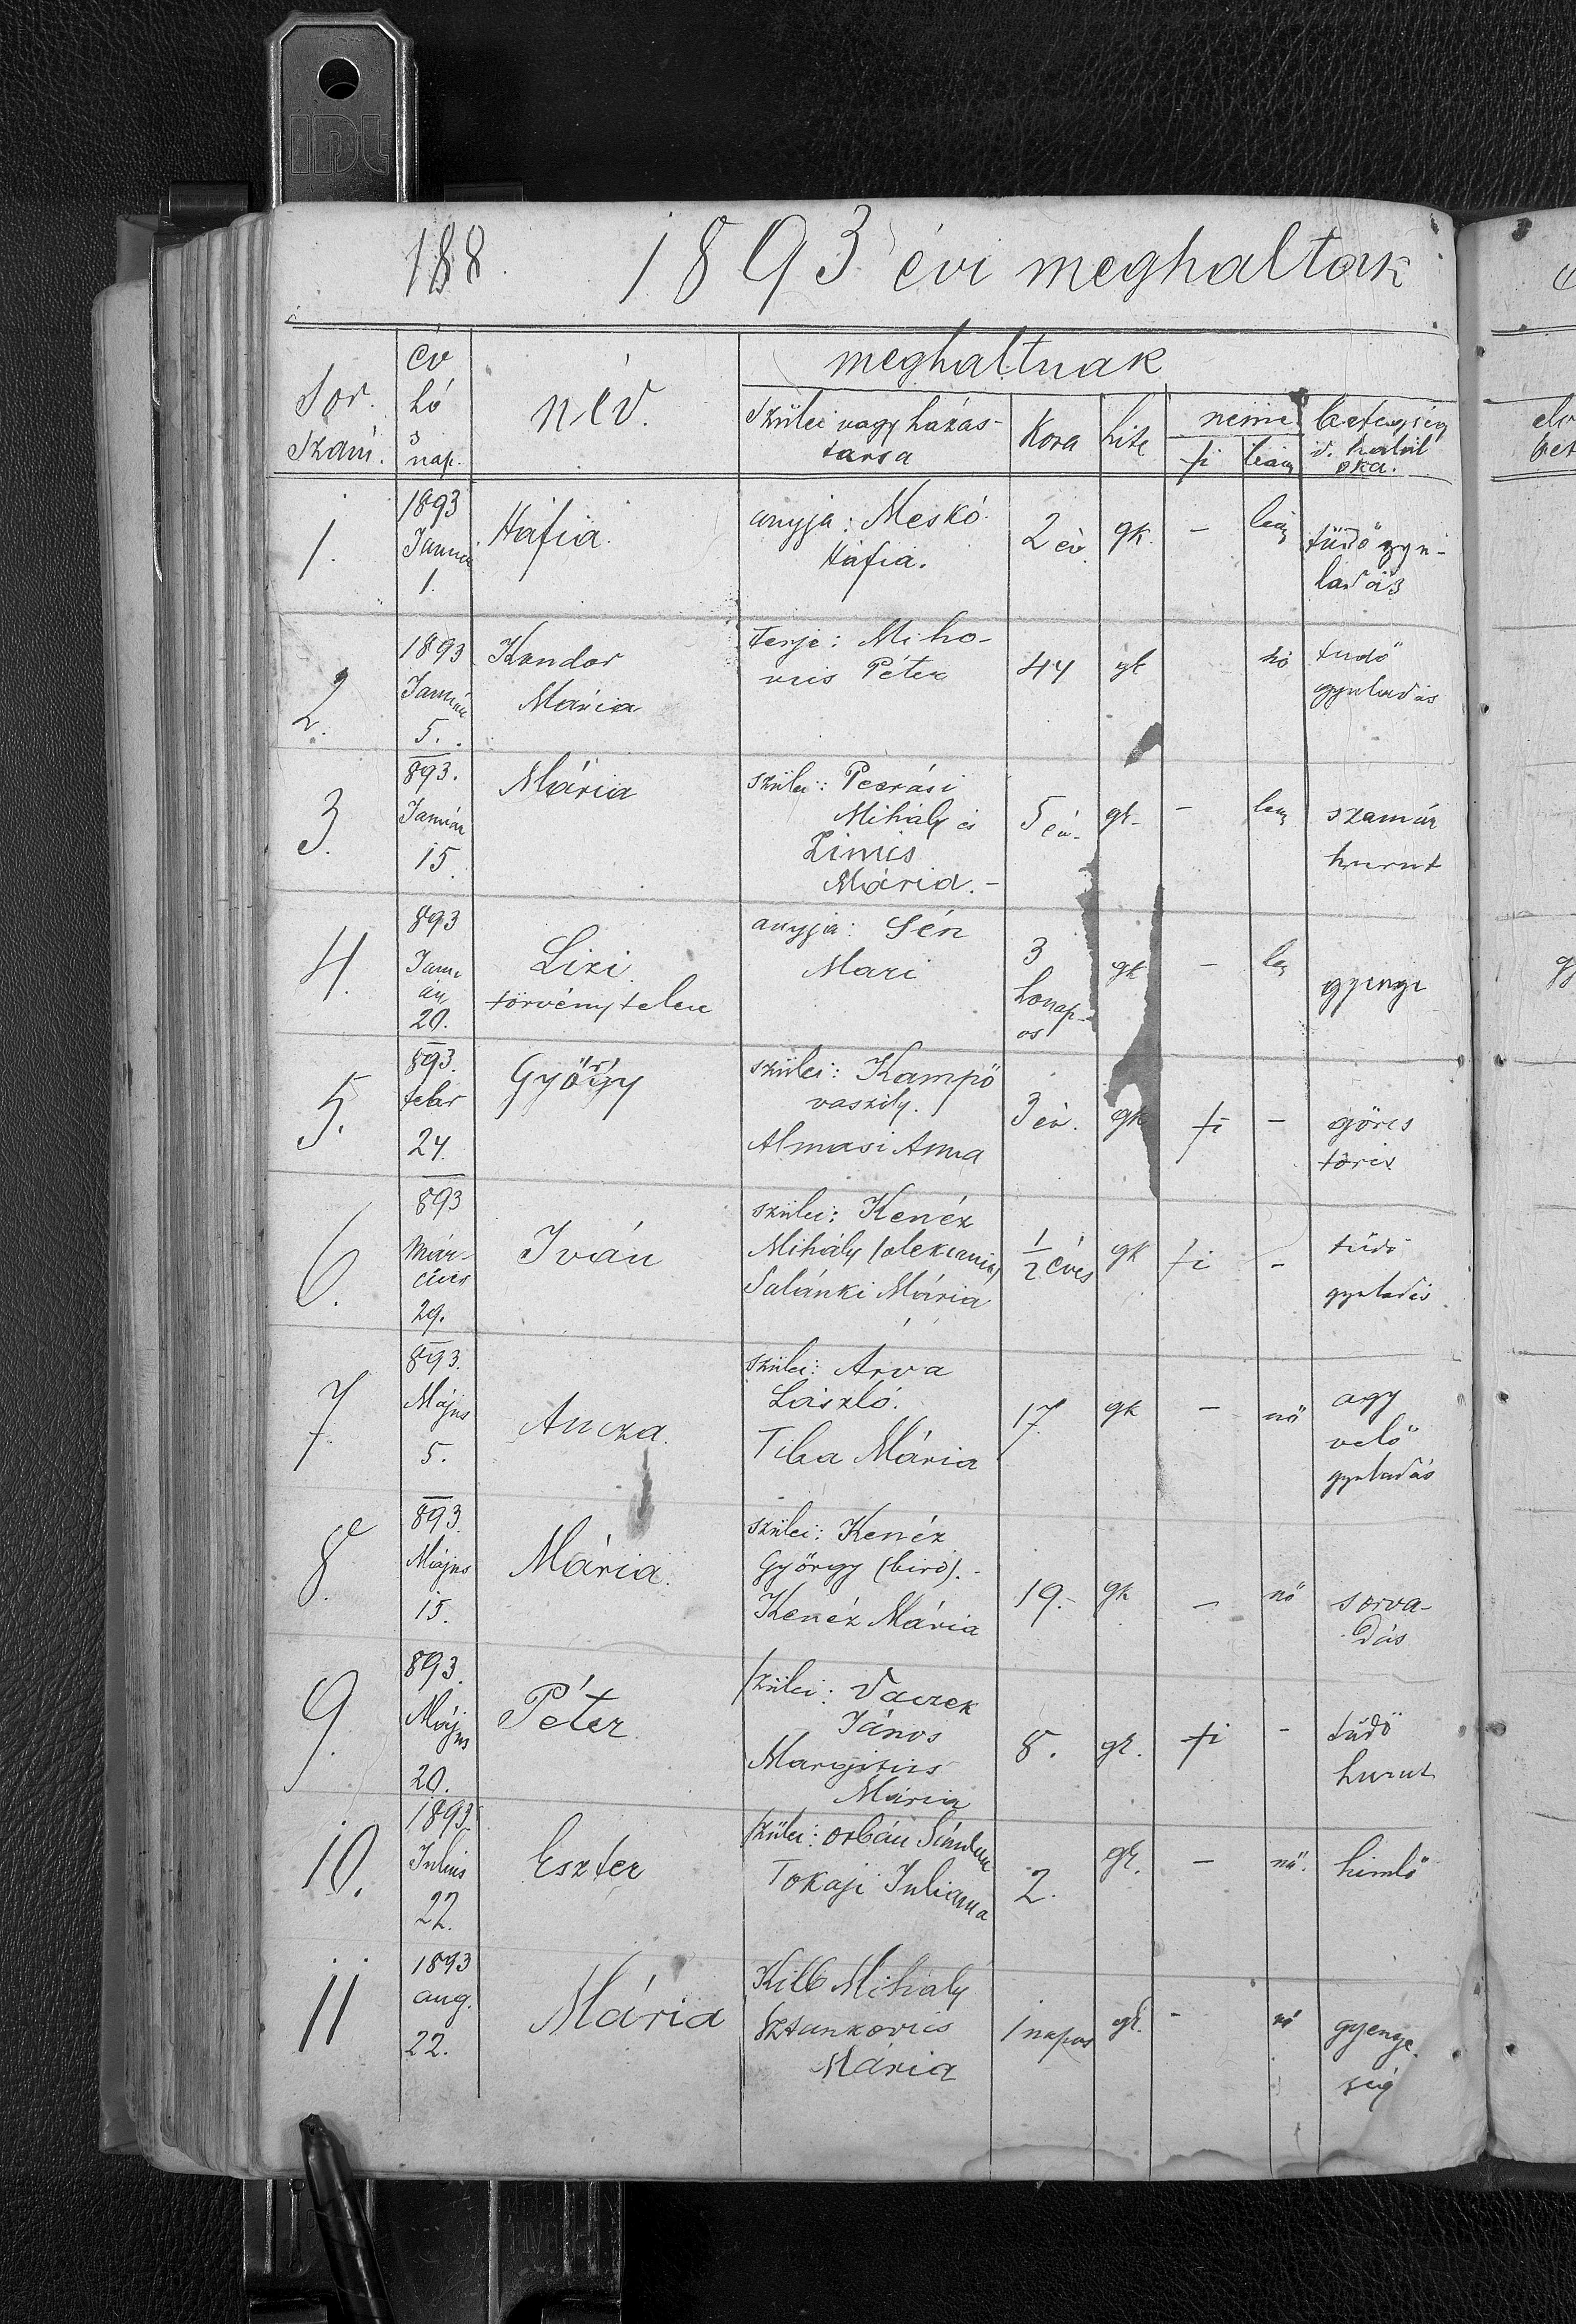 IDL
188. 1893 évi meghaltak
Sor. Szám.
év hó s nap.
név.
meghaltnak
Szülei vagy házas-
társa
Kora
hite
neme
fi
leány
betegség
s. halál
oka.
1.
1893
Januá
1.
Háfia.
anyja: Meskó
Háfia.
2 év.
gk.
–
leány
tüdő gyu-
ladás
2.
1893
Január
5.
Kondor
Mária
ferje: Miho-
vics Péter
44
gk
nő
tüdő
gyuladás
3.
893.
Január
15.
Mária
szülei:
Mihály és
Mária. –
5 év.
gk.
–
leány
szamár
hurut
4.
893
Janu
ár
20.
Lizi
törvénytelen
anyja: Sén
Mari
3
honap-
os
gk
–
gyenge
5.
893.
febr
24.
György
szülei: Kampó
vaszily.
Almasi Anna
3 év.
gk
fi
–
görcs
6.
893
Már-
cius
29.
Iván
szülei: Kenéz
Mihály
Salánki Mária
1/2 éves
gk
fi
–
tüdő
gyuladás
7.
893.
Május
5.
Ancza.
szülei: Arva
László.
Tiba Mária
17.
gk
–
nő
agy
velő
gyuladás
8.
893.
Május
15.
Mária.
szülei: Kenéz
György (biró). –
Kenéz Mária
19. –
gk
–
nő
sorva-
dás
9.
893.
Május
20.
Péter
szülei: Vaczek
János
Margitics
Mária
8.
gk.
fi
–
tüdő
hurut
10.
1893.
Julius
22.
Eszter
szülei: orbán Sándor
Tokaji Julianna
2.
gk.
–
nő.
himlő
11
1893
aug.
22.
Mária
Kilb Mihaly
Sztankovics
Mária
1 napos
gk.
–
nő
gyenge-
ség